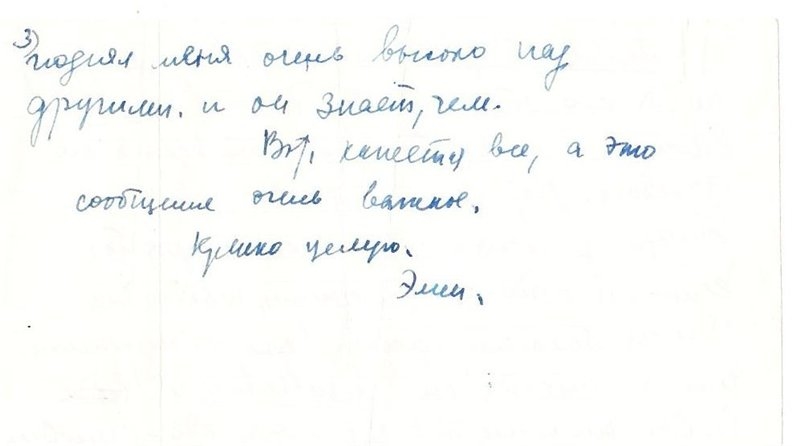 3)
поднял меня очень высоко над
другими. и он знает, чем.
Вот, кажется все, а это
сообщение очень важное.
Крепко целую.
Эмы.